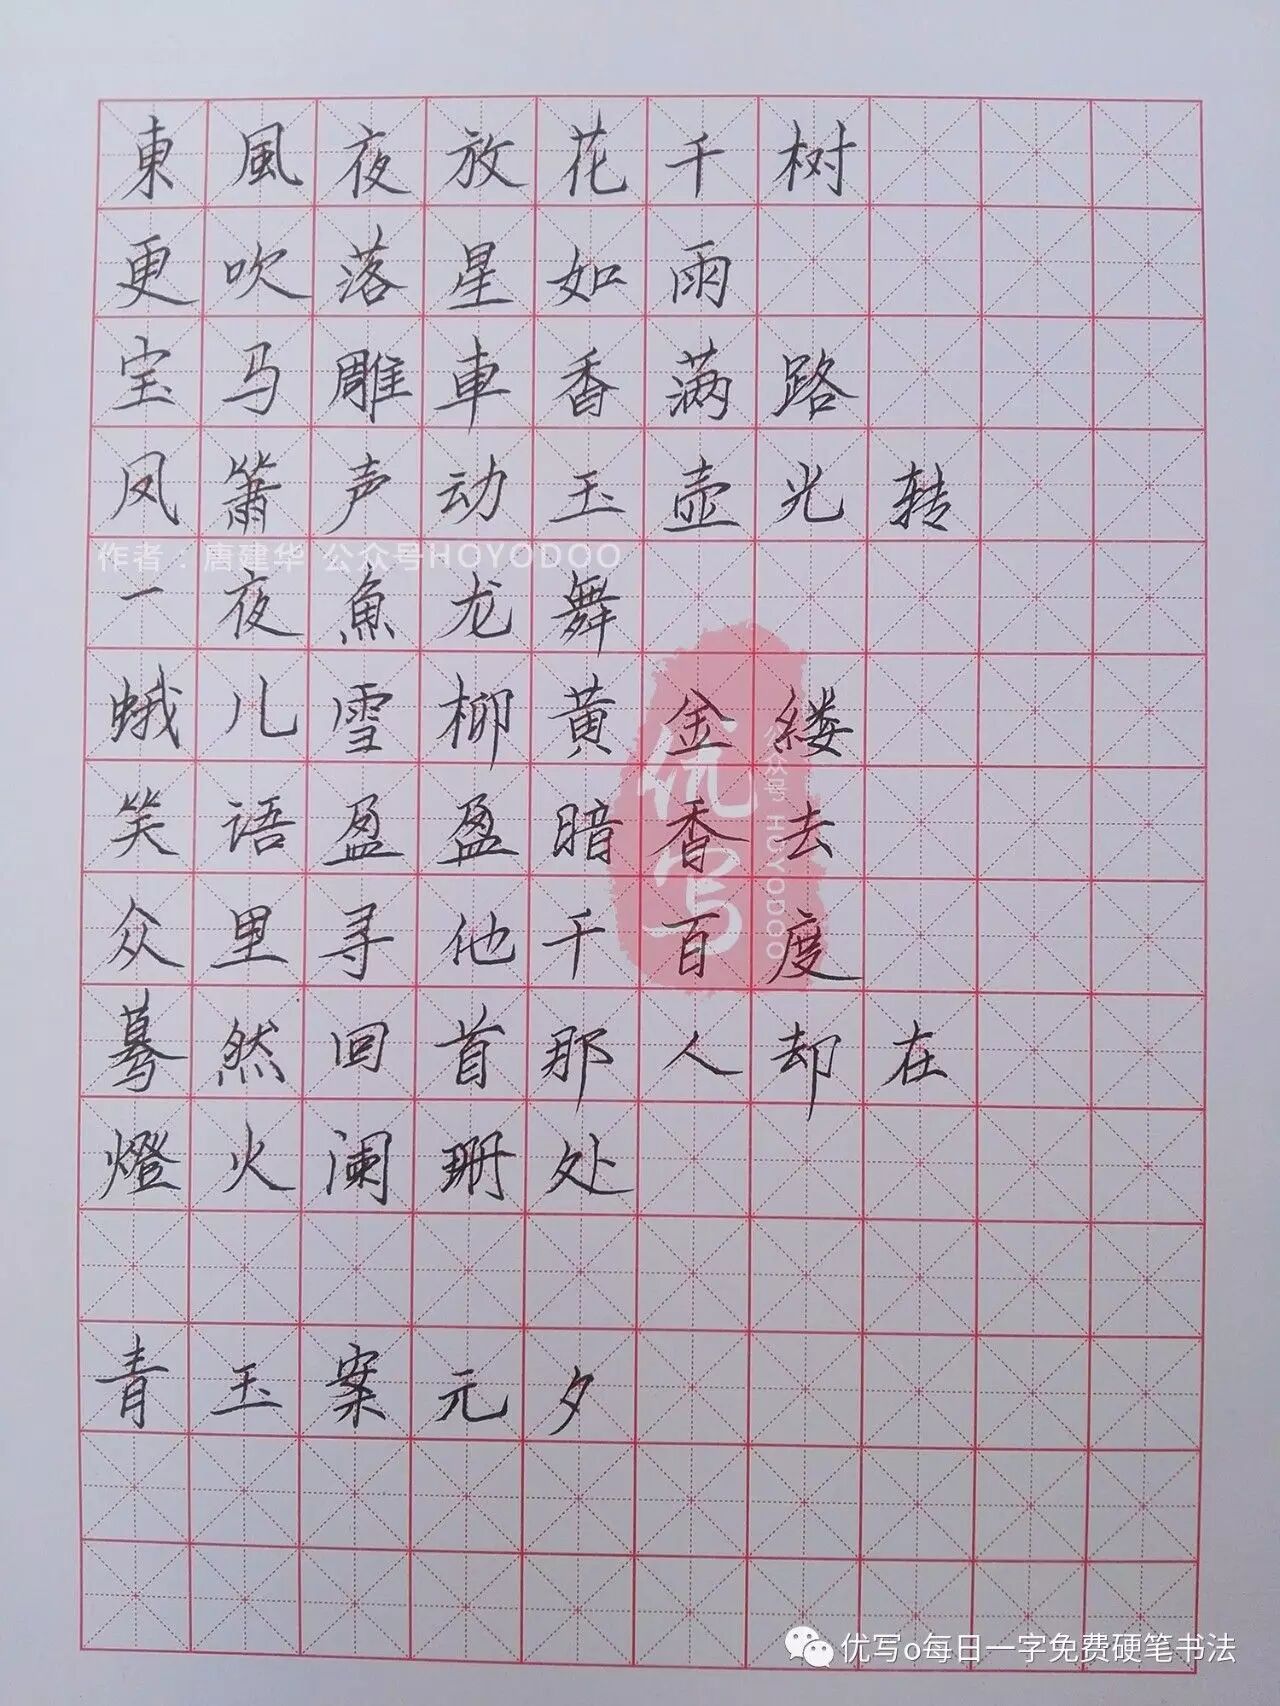 東風夜放花千树
更吹落星如雨
宝马雕車香满路
凤箫声动玉壶光转
作者：唐建华 公众号HOYODOO
一夜魚龙舞
蛾儿雪柳黄金缕
笑语盈盈暗香去
众里寻他千百度
蓦然回首那人却在
燈火阑珊处
优写
公众号 HOYODOO
青玉案元夕
优写o每日一字免费硬笔书法